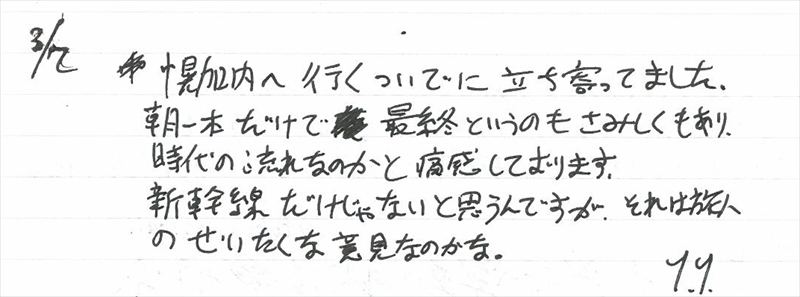 3/2
幌加内へ行くついでに立ち寄ってました。
朝一本だけで最終というのもさみしくもあり、
時代の流れなのかと痛感しております。
新幹線だけじゃないと思うんですが、それは旅人
のぜいたくな意見なのかな。
Y.Y.